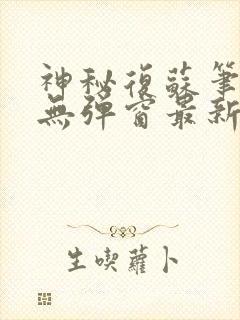 神秘復蘇筆
無彈窗最新
生喫蘿卜